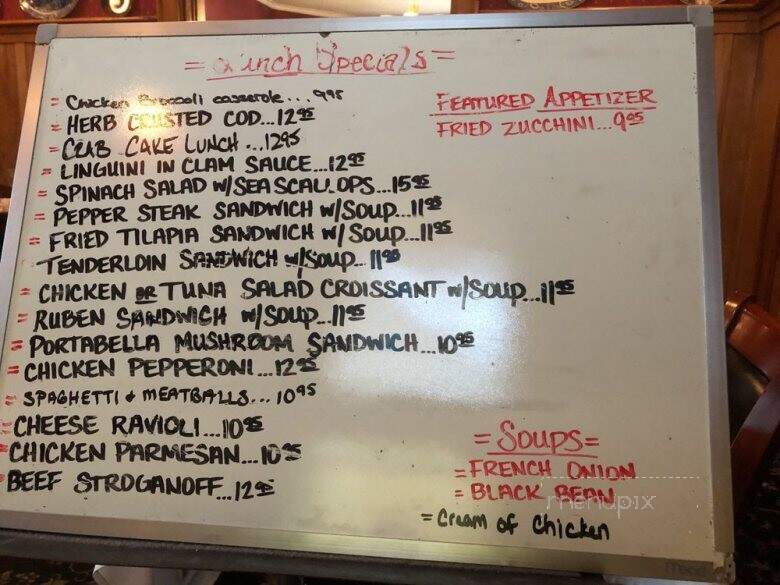 = Lunch Specials =
= Chicken Broccoli casserole... 995
= HERB CRUSTED COD...1295
= CRAB CAKE LUNCH...1295
= LINGUINI IN CLAM SAUCE...1295
= SPINACH SALAD W/SEA SCALLOPS...1595
= PEPPER STEAK SANDWICH W/SOUP...1195
= FRIED TILAPIA SANDWICH W/SOUP...1195
TENDERLOIN SANDWICH W/SOUP...1195
= CHICKEN OR TUNA SALAD CROISSANT W/SOUP...1195
= RUBEN SANDWICH W/SOUP...1195
= PORTABELLA MUSHROOM SANDWICH...1095
= CHICKEN PEPPERONI...1295
= SPAGHETTI & MEATBALLS...1095
= CHEESE RAVIOLI...1095
= CHICKEN PARMESAN...1095
= BEEF STROGANOFF...1295
FEATURED APPETIZER
FRIED ZUCCHINI...995
= SOUPS =
= FRENCH ONION
= BLACK BEAN
= Cream of Chicken
menupix